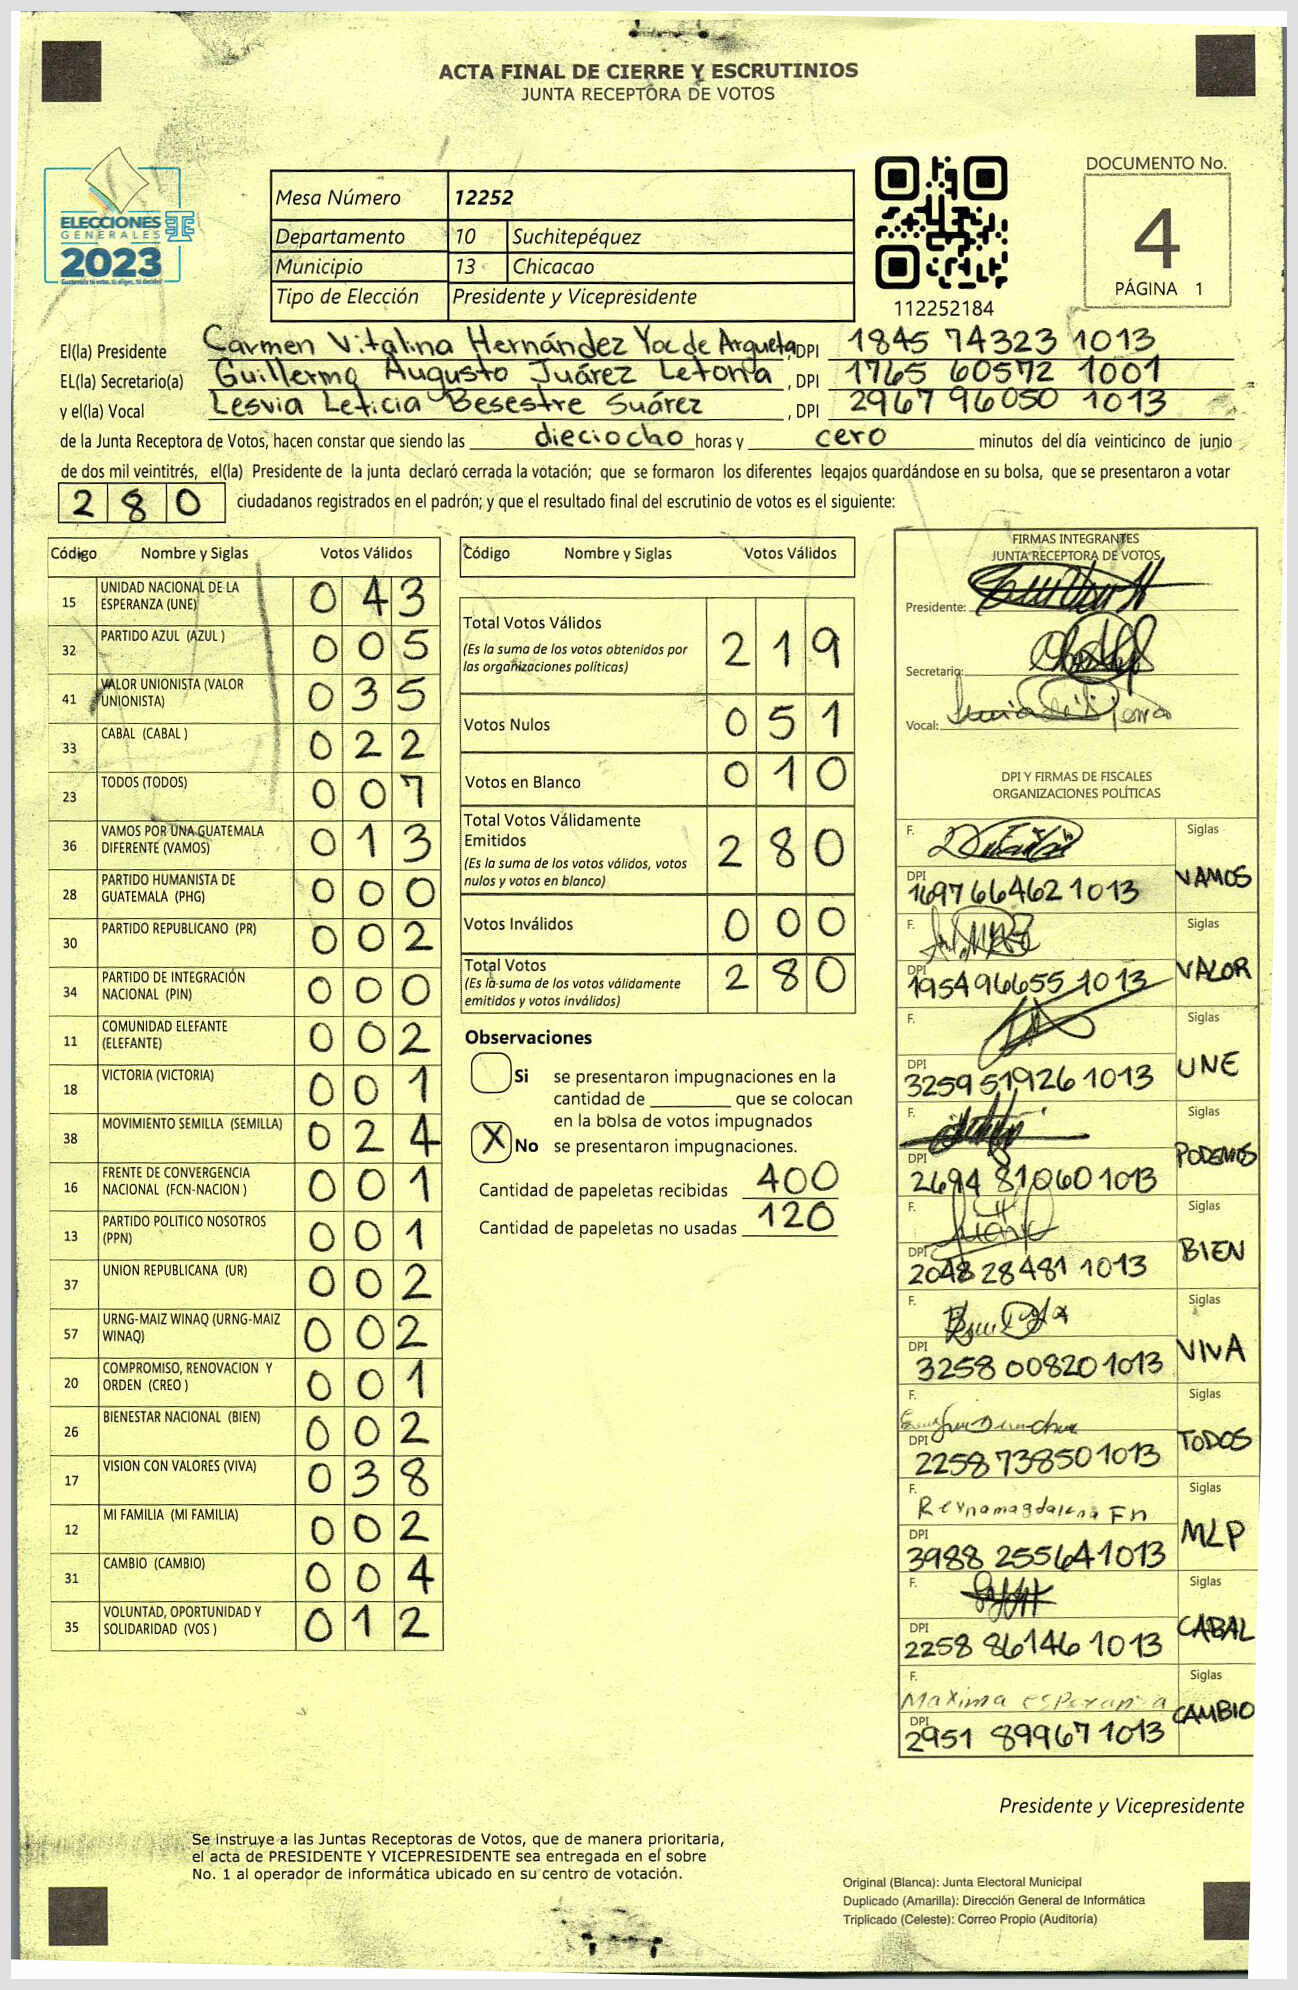 ACTA FINAL DE CIERRE Y ESCRUTINIOS
JUNTA RECEPTORA DE VOTOS
ELECCIONES
GENERALES
2023
Mesa Número 12252
Departamento 10 Suchitepéquez
Municipio 13 Chicacao
Tipo de Elección Presidente y Vicepresidente
112252184
DOCUMENTO No.
4
PÁGINA 1
El(la) Presidente Carmen Vitalina Hernández Yac de Argueta, DPI 1845 74323 1013
EL(la) Secretario(a) Guillermo Augusto Juárez Letona, DPI 1765 60572 1001
y el(la) Vocal Lesvia Leticia Besestre Suárez, DPI 2967 96050 1013
de la Junta Receptora de Votos, hacen constar que siendo las dieciocho horas y cero minutos del día veinticinco de junio
de dos mil veintitrés, el(la) Presidente de la junta declaró cerrada la votación; que se formaron los diferentes legajos guardándose en su bolsa, que se presentaron a votar
280 ciudadanos registrados en el padrón; y que el resultado final del escrutinio de votos es el siguiente:
Código Nombre y Siglas Votos Válidos
15 UNIDAD NACIONAL DE LA ESPERANZA (UNE) 043
32 PARTIDO AZUL (AZUL ) 005
41 VALOR UNIONISTA (VALOR UNIONISTA) 035
33 CABAL (CABAL ) 022
23 TODOS (TODOS) 007
36 VAMOS POR UNA GUATEMALA DIFERENTE (VAMOS) 013
28 PARTIDO HUMANISTA DE GUATEMALA (PHG) 000
30 PARTIDO REPUBLICANO (PR) 002
34 PARTIDO DE INTEGRACIÓN NACIONAL (PIN) 000
11 COMUNIDAD ELEFANTE (ELEFANTE) 002
18 VICTORIA (VICTORIA) 001
38 MOVIMIENTO SEMILLA (SEMILLA) 024
16 FRENTE DE CONVERGENCIA NACIONAL (FCN-NACION ) 001
13 PARTIDO POLITICO NOSOTROS (PPN) 001
37 UNION REPUBLICANA (UR) 002
57 URNG-MAIZ WINAQ (URNG-MAIZ WINAQ) 002
20 COMPROMISO, RENOVACION Y ORDEN (CREO ) 001
26 BIENESTAR NACIONAL (BIEN) 002
17 VISION CON VALORES (VIVA) 038
12 MI FAMILIA (MI FAMILIA) 002
31 CAMBIO (CAMBIO) 004
35 VOLUNTAD, OPORTUNIDAD Y SOLIDARIDAD (VOS ) 012
Código Nombre y Siglas Votos Válidos
Total Votos Válidos 219
(Es la suma de los votos obtenidos por
las organizaciones politicas)
Votos Nulos 051
Votos en Blanco 010
Total Votos Válidamente
Emitidos 280
(Es la suma de los votos válidos, votos
nulos y votos en blanco)
Votos Inválidos 000
Total Votos 280
(Es la suma de los votos válidamente
emitidos y votos inválidos)
Observaciones
Si se presentaron impugnaciones en la
cantidad de ________ que se colocan
en la bolsa de votos impugnados
X No se presentaron impugnaciones.
Cantidad de papeletas recibidas 400
Cantidad de papeletas no usadas 120
FIRMAS INTEGRANTES
JUNTA RECEPTORA DE VOTOS
Presidente:
Secretario:
Vocal:
DPI Y FIRMAS DE FISCALES
ORGANIZACIONES POLÍTICAS
F. Siglas
DPI 1697 66462 1013 VAMOS
F. Siglas
DPI 1954 96655 1013 VALOR
F. Siglas
DPI 3259 51926 1013 UNE
F. Siglas
DPI 2694 81060 1013 PODEMOS
F. Siglas
DPI 2048 28481 1013 BIEN
F. Siglas
DPI 3258 00820 1013 VIVA
F. Siglas
DPI 2258 73850 1013 TODOS
F. Reynamagdalena Siglas
DPI 3988 25564 1013 MLP
F. Siglas
DPI 2258 86146 1013 CABAL
F. Maxima esperanza Siglas
DPI 2951 89967 1013 CAMBIO
Presidente y Vicepresidente
Se instruye a las Juntas Receptoras de Votos, que de manera prioritaria,
el acta de PRESIDENTE Y VICEPRESIDENTE sea entregada en el sobre
No. 1 al operador de informática ubicado en su centro de votación.
Original (Blanca): Junta Electoral Municipal
Duplicado (Amarilla): Dirección General de Informática
Triplicado (Celeste): Correo Propio (Auditoría)